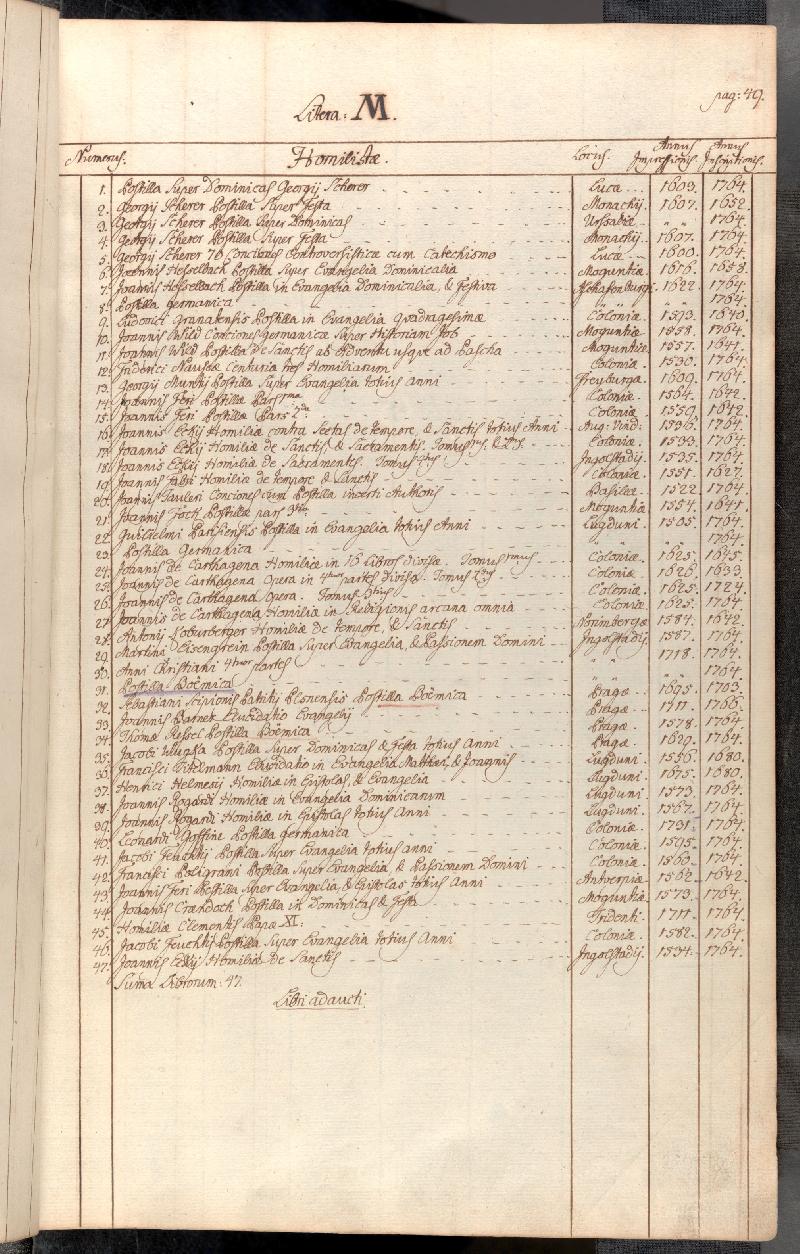 pag: 49.
Litera: M.
Numerus. Homilistæ. Locus. Annus Impressionis. Annus Inscriptionis.
1. Postilla Super Dominicas Georgij Scherer Lucæ 1603. 1764.
2. Georgij Scherer Postilla Super Festa Monachij 1607. 1652.
3. Georgij Scherer Postilla Super Dominicas Ursaliæ " " 1764.
4. Georgij Scherer Postilla Super Festa Monachij 1607. 1764.
5. Georgij Scherer 76 Conciones Controversisticæ cum Catechismo Lucæ 1600. 1764.
6. Joannis Hesselbach Postilla Super Evangelia Dominicalia Moguntiæ 1616. 1653.
7. Joannis Hesselbach Postilla in Evangelia Dominicalia, & Festiva Aschafenburgi 1622. 1764.
8. Postilla Germanica " " " " 1764.
9. Ludovici Granatensis Postilla in Evangelia Qvadragesimæ Coloniæ 1593. 1640.
10. Joannis Wild Conciones germanicæ Super Historiam Job Moguntiæ 1558. 1764.
11. Joannis Wild Postilla De Sanctis ab Adventu usqve ad Pascha Moguntiæ 1557. 1641.
12. Friderici Nauseæ Centuriæ tres Homiliarum Coloniæ 1530. 1764.
13. Georgij Muntij Postilla Super Evangelia totius anni Freyburgæ 1609. 1764.
14. Joannis Feri Postillæ Pars 1ma Coloniæ 1564. 1642.
15. Joannis Feri Postillæ Pars 2da Coloniæ 1559. 1642.
16. Joannis Eckij Homiliæ contra Sectas de tempore, & Sanctis totius Anni Aug: Vind: 1536. 1764.
17. Joannis Eckij Homiliæ de Sanctis, & Sacramentis. Tomus Coloniæ 1533. 1764.
18. Joannis Eckij Homiliæ de Sacramentis. Tomus Ingolstadij 1535. 1764.
19. Joannis Fabri Homiliæ de tempore & Sanctis Coloniæ 1551. 1627.
20. Joannis Tauleri Conciones cum Postilla incerti Authoris Basileæ 1522. 1764.
21. Joannis Foch Postillæ pars 3tia Moguntiæ 1554. 1641.
22. Guilielmi Parisiensis Postilla in Evangelia totius Anni Lugduni 1505. 1764.
23. Postilla Germanica " " 1764.
24. Joannis de Carthagena Homiliæ in 16 libros divisæ. Tomus 1mus Coloniæ 1625. 1645.
25. Joannis de Carthagena Opera in 4tuor partes divisa. Tomus 2dus Coloniæ 1626. 1633.
26. Joannis de Carthagena Opera. Tomus 3tius Coloniæ 1625. 1724.
27. Joannis de Carthagena Homiliæ in Religionis arcana omnia Coloniæ 1625. 1764.
28. Antonij Koburberger Homiliæ de tempore, & Sanctis Norimbergæ 1584. 1642.
29. Martini Eisengrein Postilla Super Evangelia, & Passionem Domini Ingolstadij 1587. 1764.
30. Anni Christiani 4tuor partes " " 1718. 1764.
31. Postilla Boëmica " " " " 1764.
32. Sebastiani Scipionis Patritij Plsnensis Postilla Boëmica Pragæ 1695. 1703.
33. Joannis Barnek Elucidatio Evangelij Pragæ 1711. 1766.
34. Thomæ Ressel Postilla Boëmica Pragæ 1578. 1764.
35. Jacobi Postilla Super Dominicas & Festa totius anni Pragæ 1629. 1764.
36. Francisci Titelmann Elucidatio in Evangelia Matthæi, & Joannis Lugduni 1556. 1680.
37. Henrici Helmesij Homiliæ in Epistolas, & Evangelia Lugduni 1675. 1680.
38. Joannis Rogardi Homiliæ in Evangelia Dominicarum Lugduni 1573. 1764.
39. Joannis Rogardi Homiliæ in Epistolas totius Anni Lugduni 1567. 1764.
40. Leonardi Goffine Postilla germanica Coloniæ 1731. 1764.
41. Jacobi Feuchtij Postilla Super Evangelia totius anni Coloniæ 1595. 1764.
42. Francisci Poligrani Postilla Super Evangelia, & Passionem Domini Coloniæ 1560. 1764.
43. Joannis Feri Postilla Super Evangelia, & Epistolas totius Anni Antverpiæ 1562. 1642.
44. Joannis Craendoch Postilla in Dominicas & Festa Moguntiæ 1573. 1764.
45. Homiliæ Clementis Papæ XI: Tridenti 1711. 1764.
46. Jacobi Feuchtij Postilla Super Evangelia totius Anni Coloniæ 1582. 1764.
47. Joannis Eckij Homiliæ de Sanctis Ingolstadij 1534. 1764.
Suma Librorum: 47.
Libri adaucti.